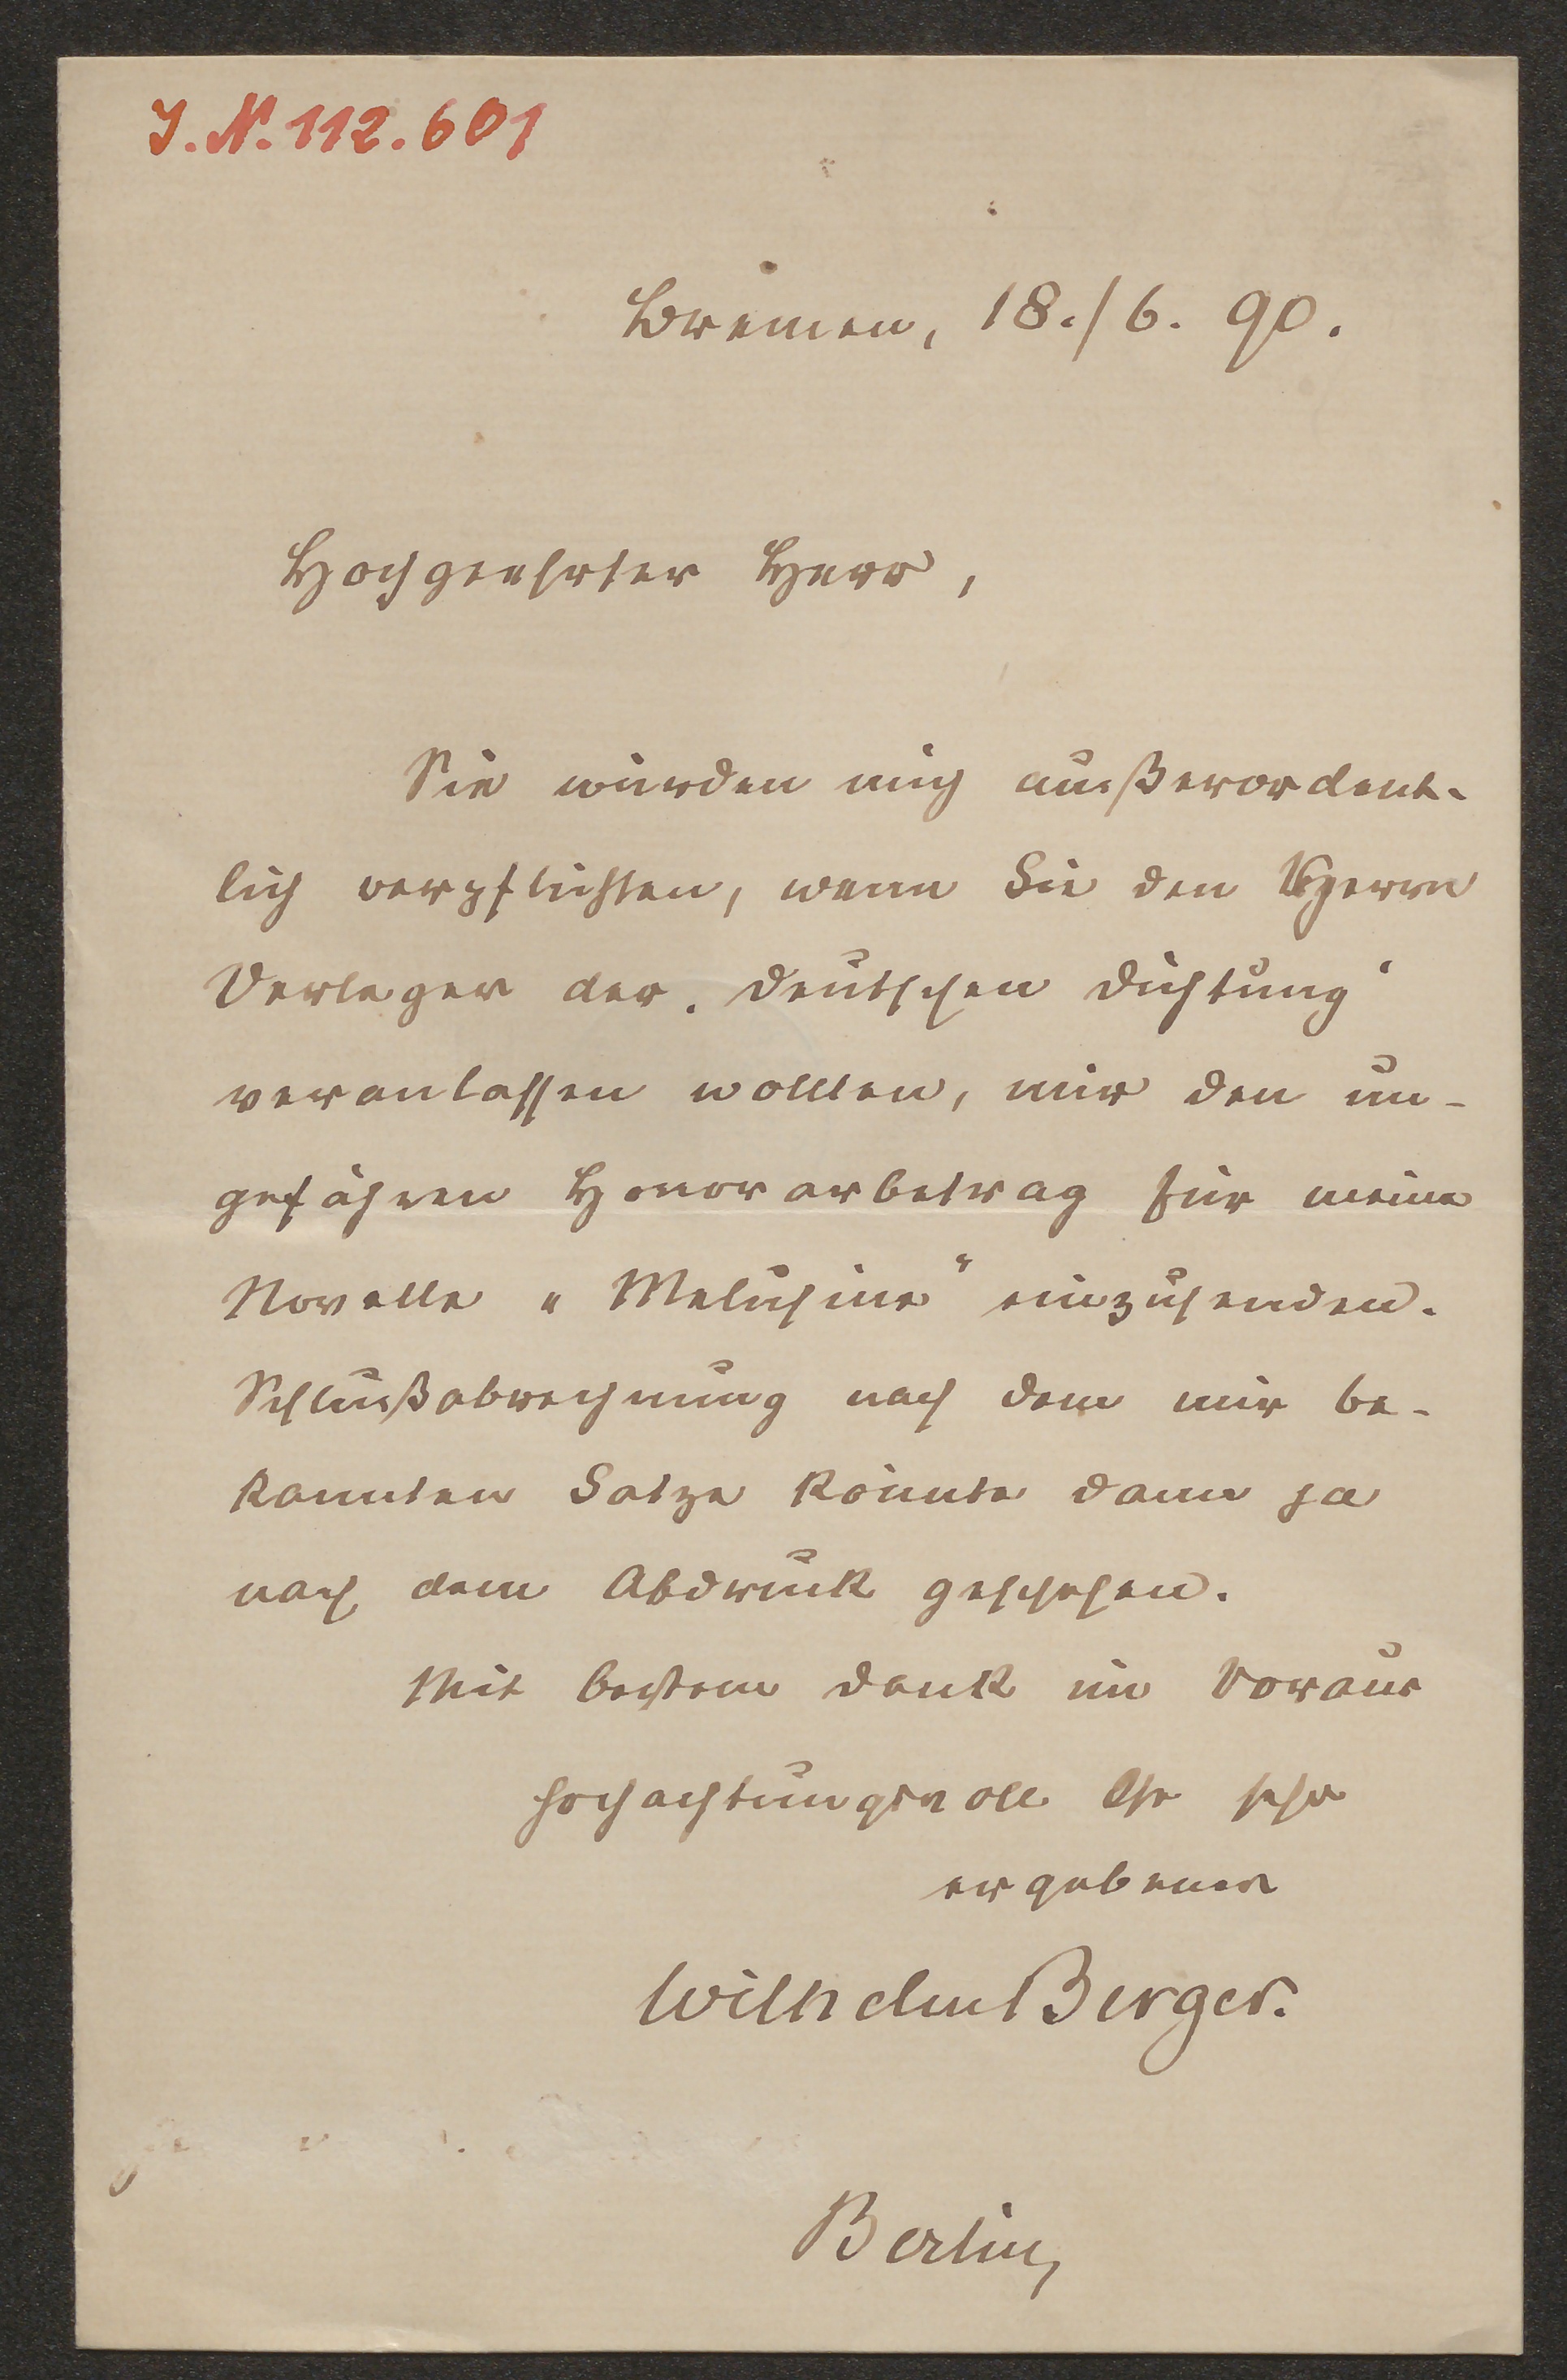 J. N. 112.601
Bremen, 18./6. 90.
Hochgeehrter Herr,
Sie würden mich außerordent-
lich verpflichten, wenn Sie den Herrn
Verleger der „Deutschen Dichtung“
veranlassen wollten, mir den un-
gefähren Honorarbetrag für meine
Novelle „Melusine“ einzusenden.
Schlußabrechnung nach dem mir be-
kannten Satze könnte dann ja
nach dem Abdruck geschehen.
Mit bestem Dank im Voraus
hochachtungsvoll Ihr sehr
ergebener
Wilhelm Berger.
Berlin,